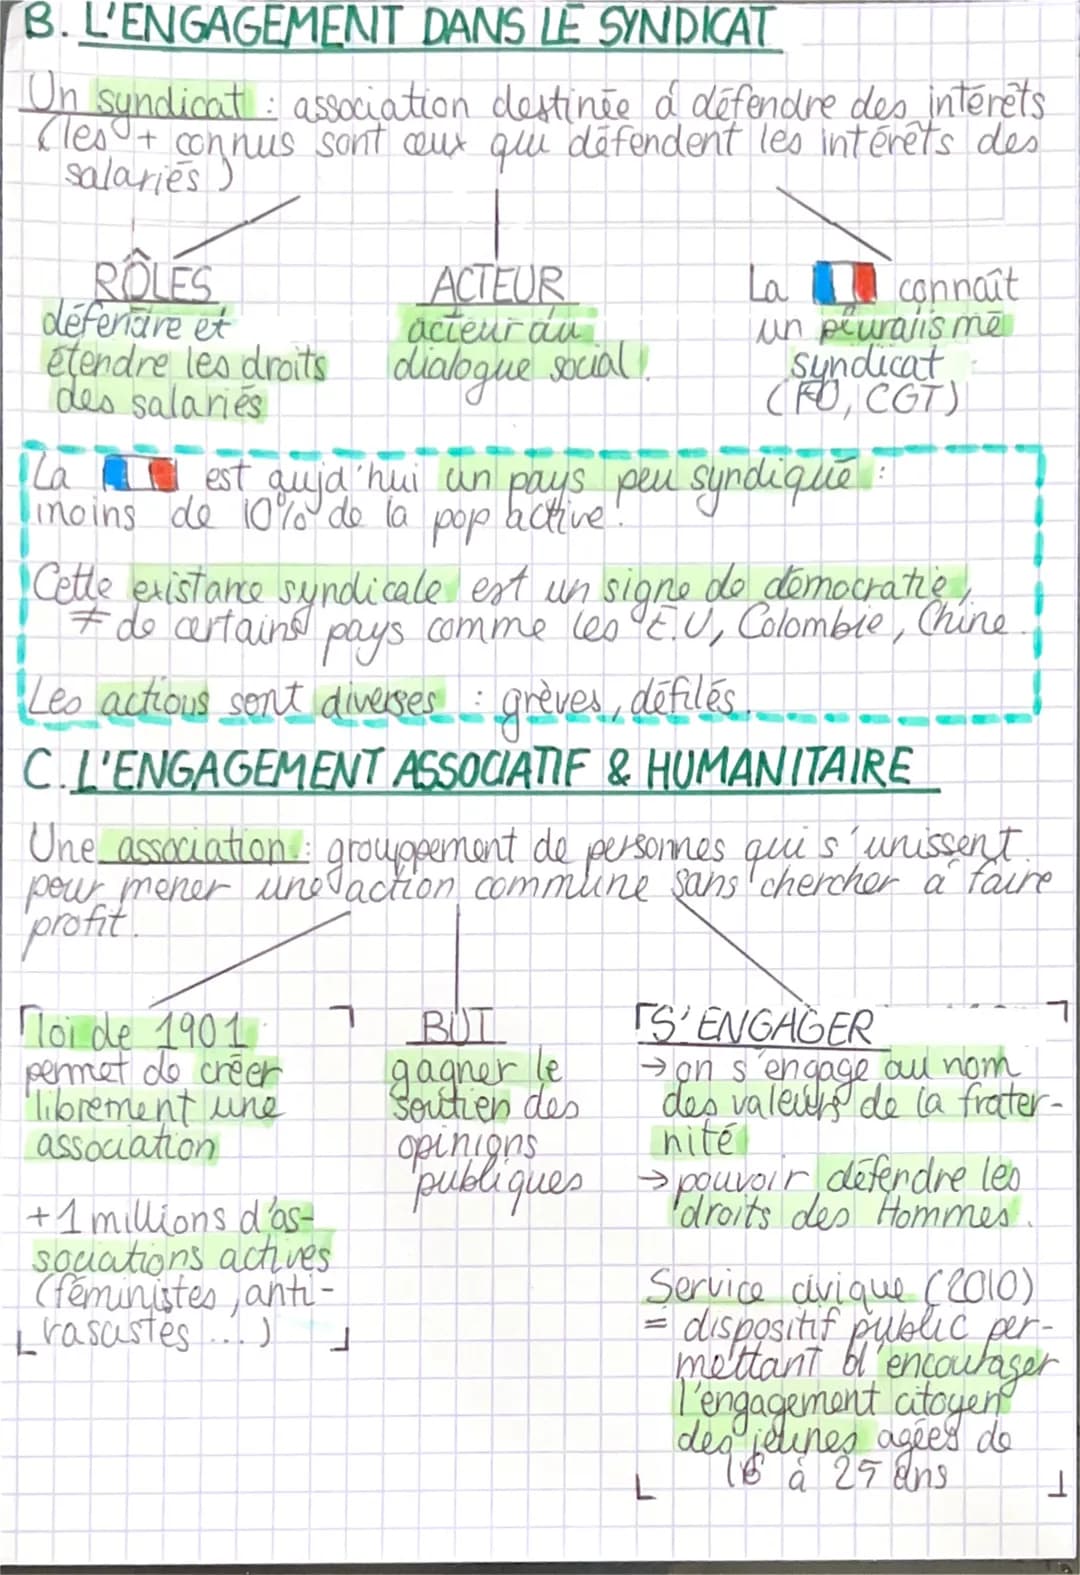 B. L'ENGAGEMENT DANS LE SYNDICAT
Un syndicat : association destinée à défendre des intérêts
(les + connus sont ceux qui défendent les intérêts des
salariés)
RÔLES
défendre et
étendre les droits
des salariés
ACTEUR
acteur du
dialogue social.
La connaît
un pluralisme
syndicat
(FO, CGT)
La est aujd'hui un pays peu syndiqué :
moins de 10% de la pop active.
Cette existance syndicale est un signe de démocratie,
≠ de certains pays comme les E.U, Colombie, Chine.
Les actions sont diverses : grèves, défilés.
C. L'ENGAGEMENT ASSOCIATIF & HUMANITAIRE
Une association : grouppement de personnes qui s'unissent
pour mener une action commune sans chercher à faire
profit.
loi de 1901
permet de créer
librement une
association
+ 1 millions d'as-
sociations actives
(féministes, anti-
rasastes ...)
BUT
gagner le
soutien des
opinions
publiques
S'ENGAGER
→ on s'engage au nom
des valeurs de la frater-
nité
→ pouvoir défendre les
droits des Hommes.
Service civique (2010)
= dispositif public per-
mettant d'encourager
l'engagement citoyen
des jeunes agées de
16 à 25 ans